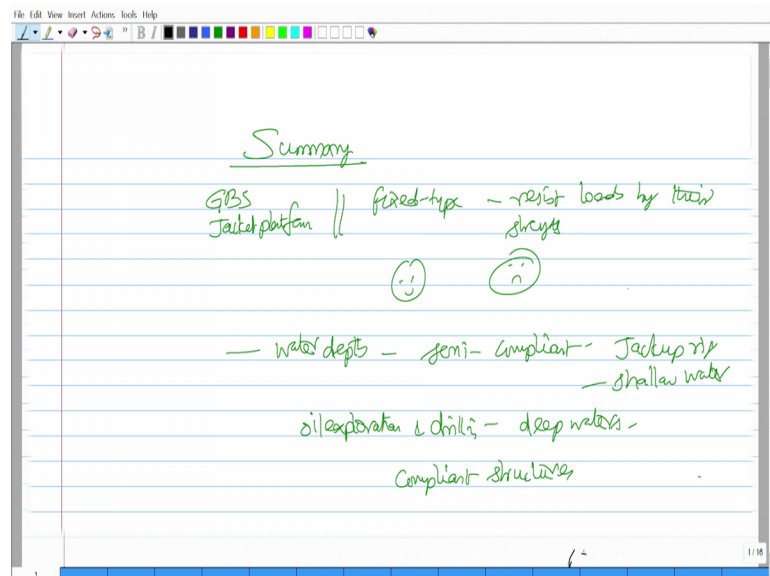 File Edit View Insert Actions Tools Help
B I
Summary
GBS || fixed-type - resist loads by their
Jacket platform strength
— water depth - semi-compliant - Jackup rig
— shallow water
oil exploration & drilling - deep waters -
Compliant structures
1/16
1